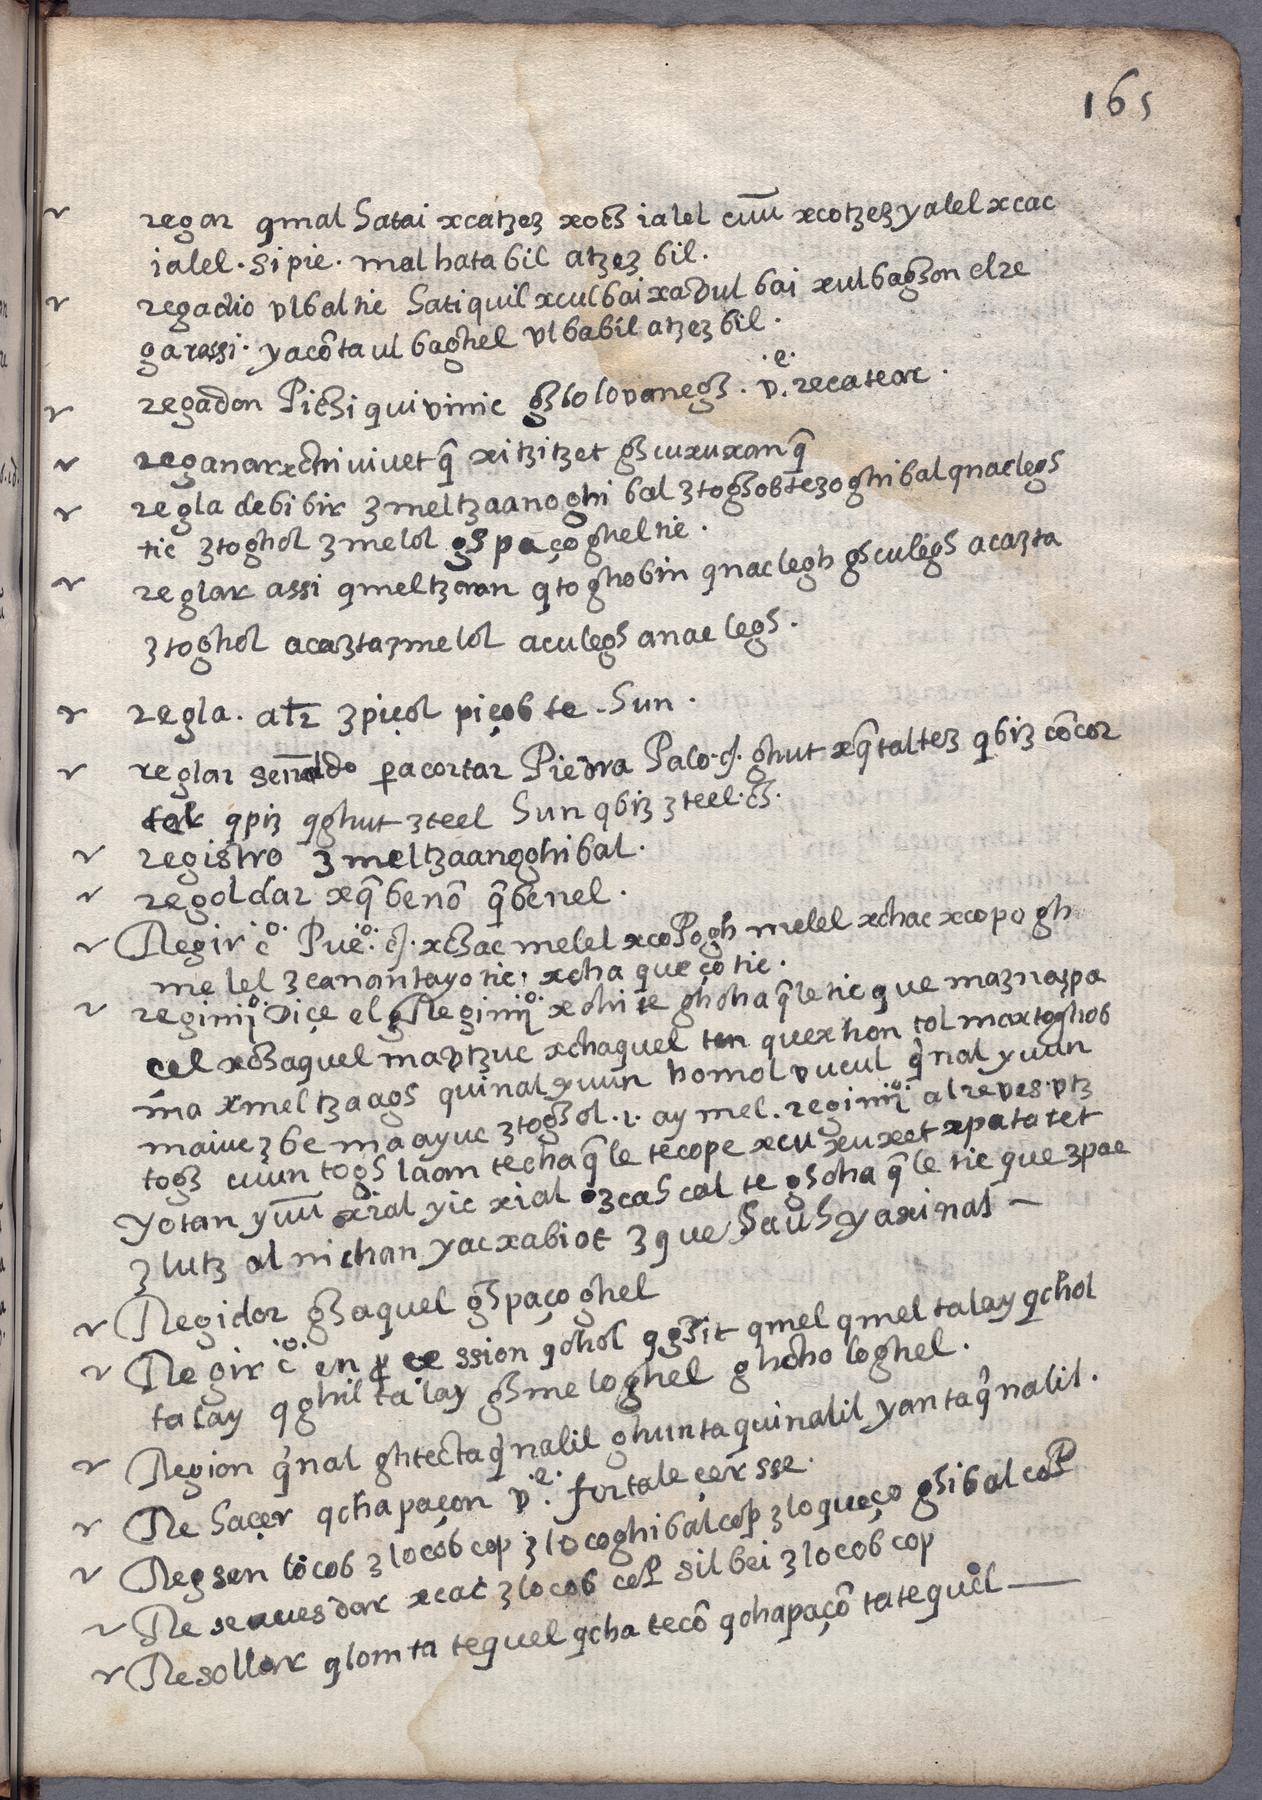 165
regar qmal hatai xcatzez xotz ialel cuū xcotzez yalel xcac
ialel. si pie. mal hata bil atzez bil.
regadio vl bal tic hati quil xcul bai xavul bai xul baghon el re
garassi. yacôta ul baghel vl babil atzez bil.
regadon Pichi qui vinic ghlolovanegh. v.e recatear.
reganar xchi uiuet q̂ xitzitzet gh cuxuxan q̂
regla de bibir zmeltzaanoghi bal ztoghob tezoghibal qnaclegh
tic ztoghol zmelol gh paçoghel tic.
reglar assi qmeltzaan qtoghobin qnaclegh gh culegh acazta
ztoghol acaztazmelol aculegh anaclegh.
regla. atr̄ zpiçol piçob te hun.
reglar señaldo pa cortar Piedra Palo. ghut xq̂taltez qbiz côcor
tar qpiz qghut zteel hun qbiz zteel.
registro zmeltzaanoghibal.
regoldar xq̂benô q̂benel.
Regir c̊. Pue.o xchac melel xcoPogh melel xchac xcopogh
melel zcanantayotic, xcha que ço tic.
regimi.o diçe el Regimi.o xchi te ghcha q̂letic que maznazpa
cel xchaquel mavtzuc xchaquel ten quexhon tol maxtoghob
ma xmeltzaagh quinal yuun homol vucul q̂nal yuun
maiuc z be ma ayuc ztoghol. ay mel. regimi.o al reves. vtz
togh cuun togh laan techa q̂le tecope xcu xuxet xpatatet
yotan yuū xial yic xial ozcah cal te ghcha q̂letic que zpac
zlutz al nichan yacxabiot zque hauh yaxinal
Regidor ghaquel ghpaçoghel
Regir c̊. en pcession qchol qghit qmel qmel talay qchol
talay qghil talay ghmeloghel ghchologhel.
Region q̂nal ghtecta q̂nalil ghunta quinalil yanta q̂nalil.
Rehaçer qchapaçon v.e. fortaleçersse.
Rehen locob zlocob cop zlocoghibal cop zloqueço ghibal coP
Re sauesdar xcac zlocob coP silbei zlocob cop
Resollar qlomta tequel qcha tecô qchapaçô tatequel